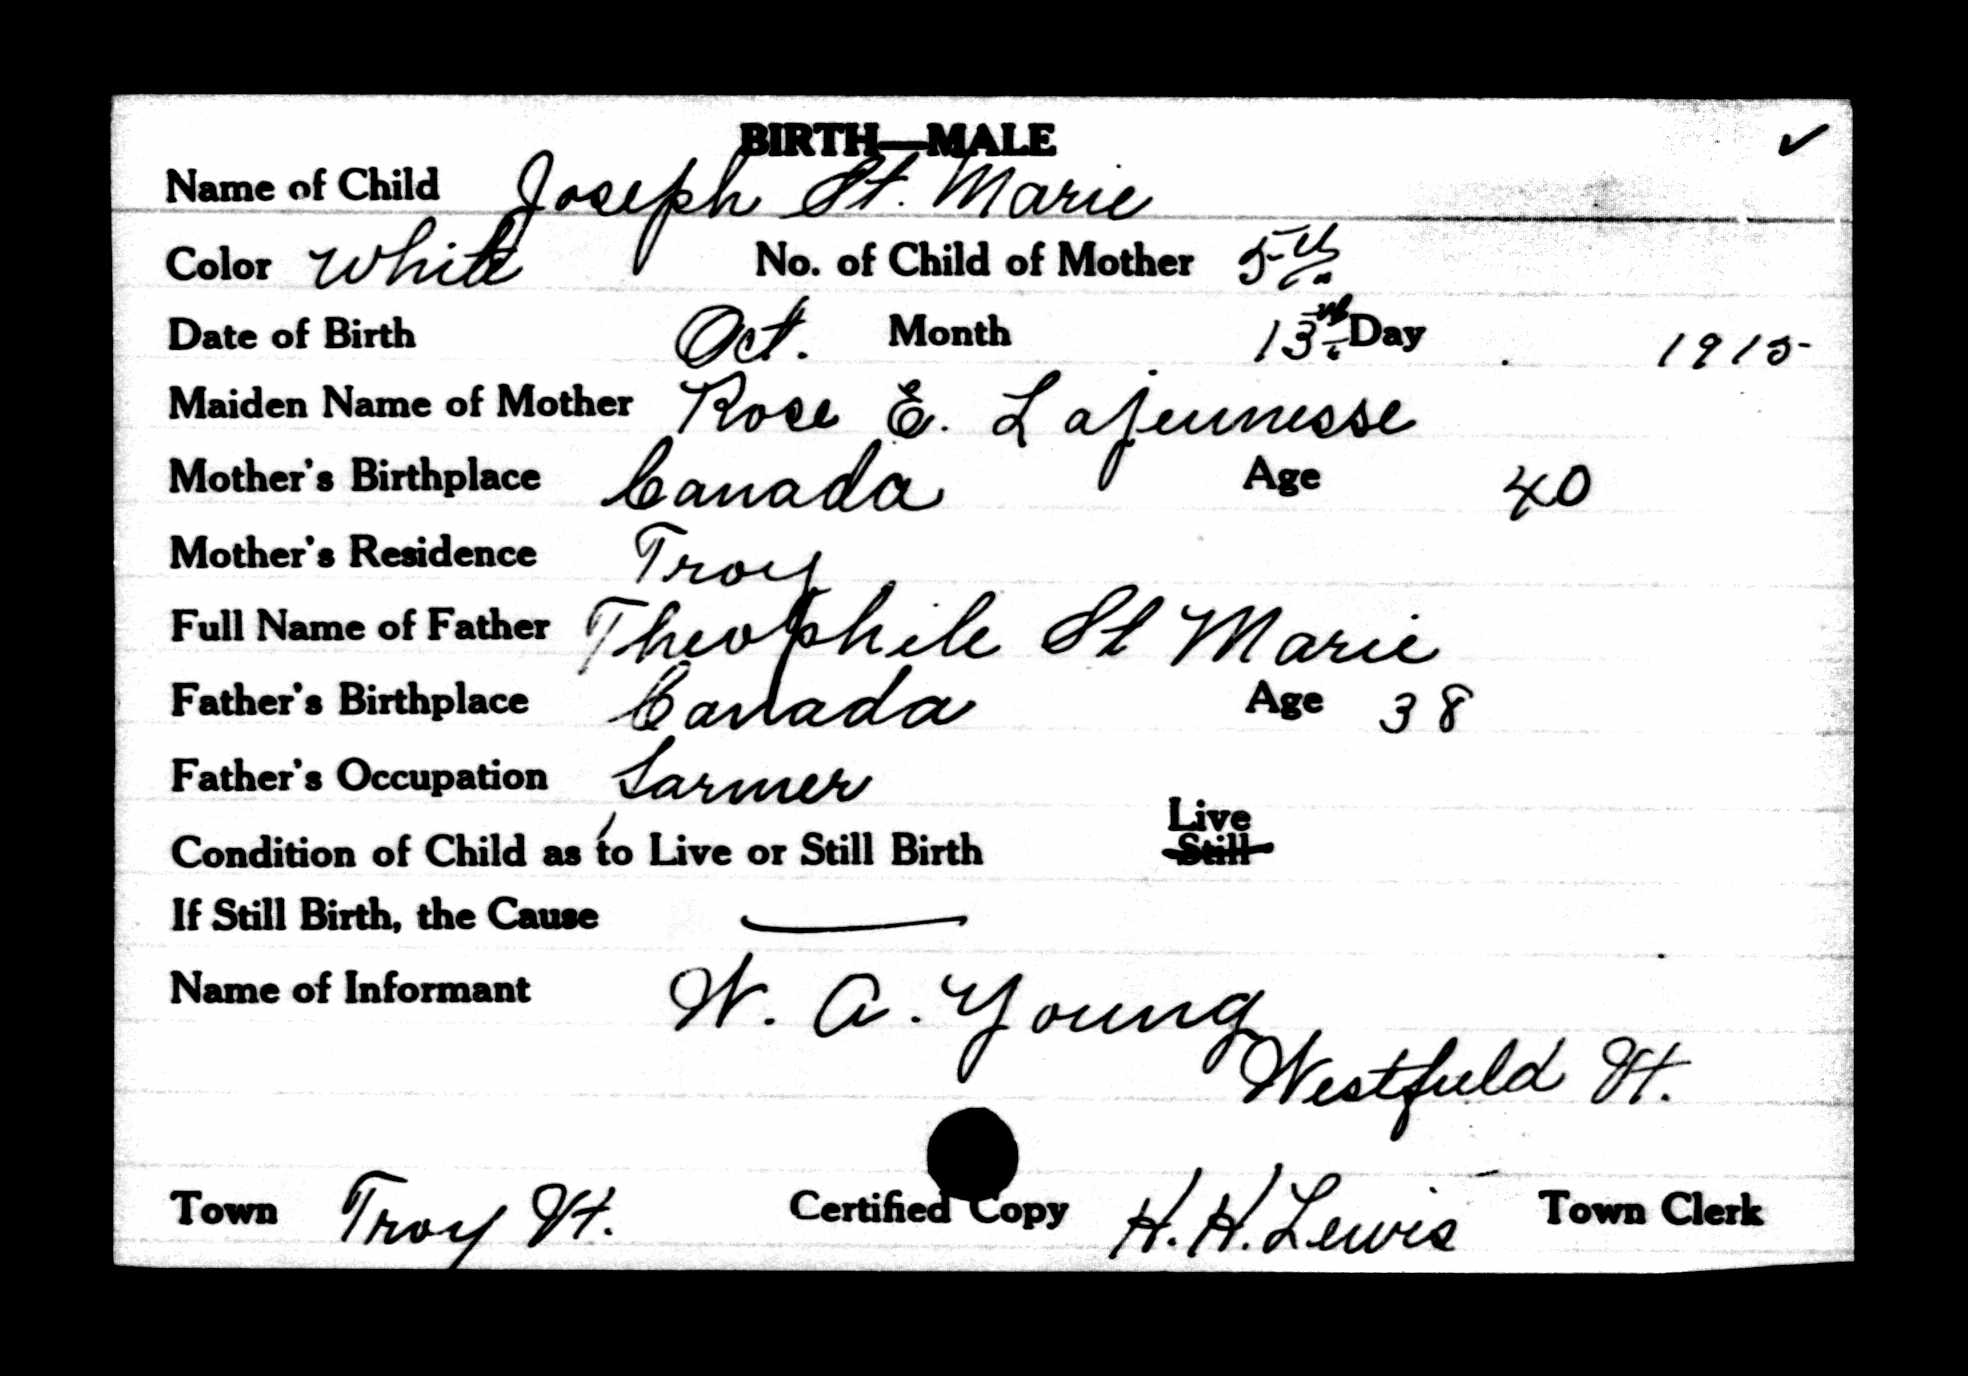 BIRTH—MALE
Name of Child Joseph St. Marie
Color White No. of Child of Mother 5th
Date of Birth Oct. Month 13th Day 1915
Maiden Name of Mother Rose E. Lajeunesse
Mother's Birthplace Canada Age 40
Mother's Residence Troy
Full Name of Father Theophile St Marie
Father's Birthplace Canada Age 38
Father's Occupation Farmer
Live
Condition of Child as to Live or Still Birth Still
If Still Birth, the Cause
Name of Informant W. A. Young
Westfield Vt.
Town Troy Vt. Certified Copy H. H. Lewis Town Clerk